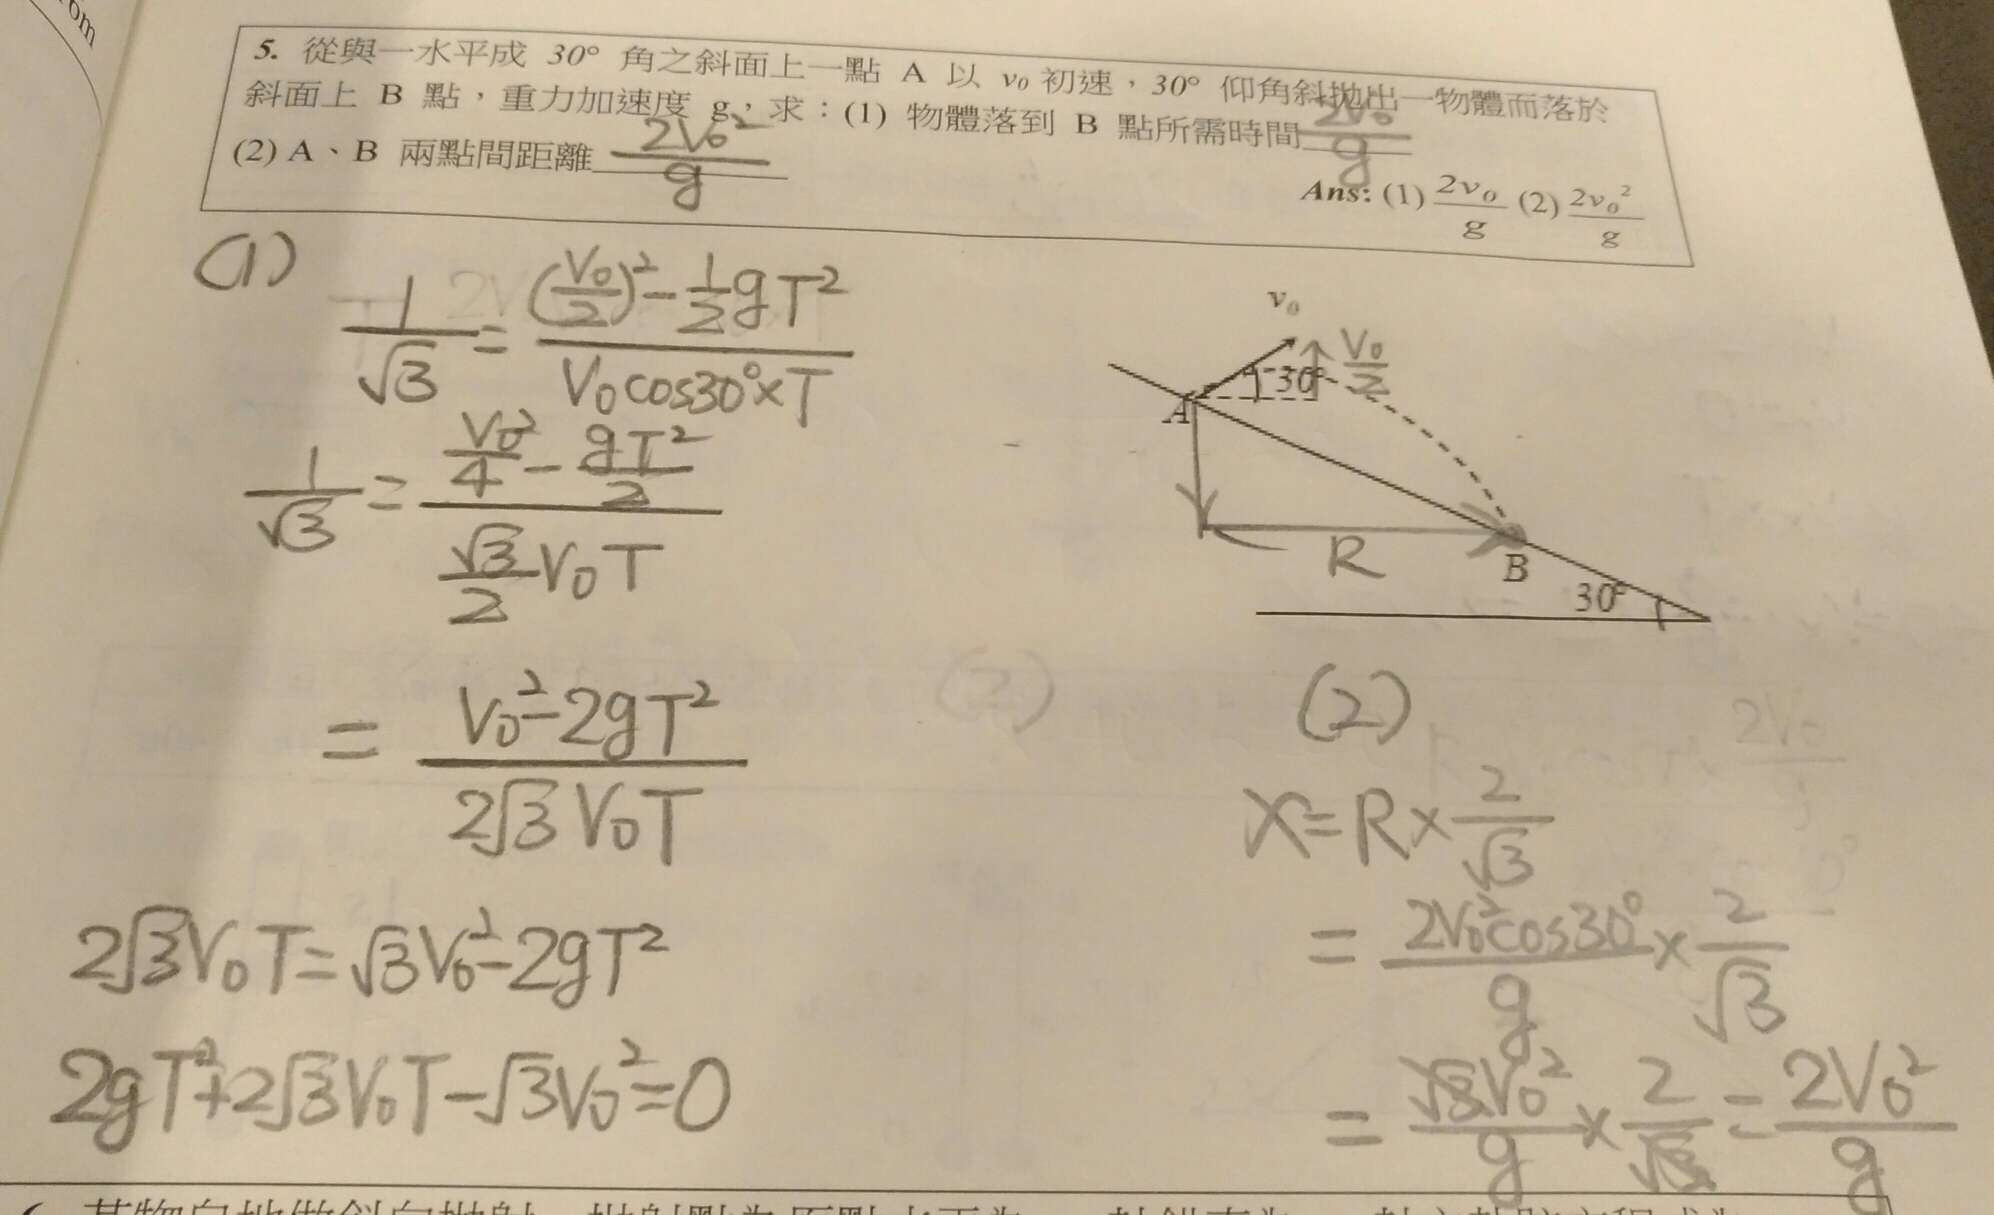 om
5. 從與一水平成 30° 角之斜面上一點 A 以 v₀ 初速，30° 仰角斜拋出一物體而落於
斜面上 B 點，重力加速度 g，求：(1) 物體落到 B 點所需時間 2V₀/g
(2) A、B 兩點間距離 2V₀²/g
Ans: (1) 2v₀/g (2) 2v₀²/g
(1)
1/√3 = ((V₀/2)² - 1/2 gT²)/(V₀cos30°×T)
1/√3 = (V₀²/4 - gT²/2)/(√3/2 V₀T)
= (V₀² - 2gT²)/(2√3 V₀T)
2√3V₀T = √3V₀² - 2gT²
2gT² + 2√3V₀T - √3V₀² = 0
v₀
V₀/2
30°
A
R
B
30°
(2)
X = R × 2/√3
= 2V₀²cos30°/g × 2/√3
= √3V₀²/g × 2/√3 = 2V₀²/g